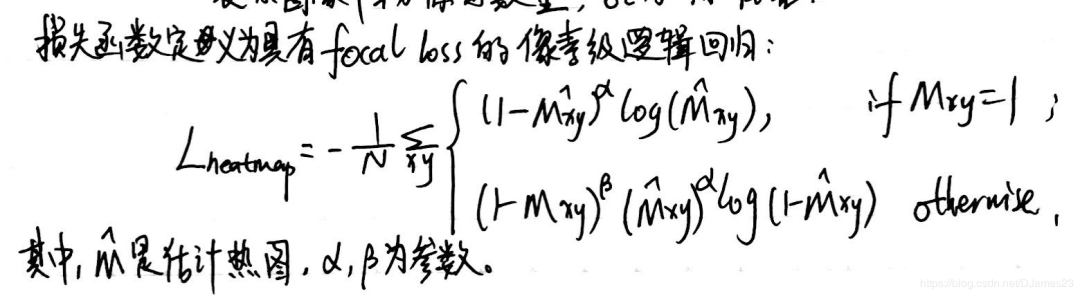 损失函数定义为具有focal loss的像素级逻辑回归:
L_heatmap = -1/N Σ_xy { (1-M̂_xy)^α log(M̂_xy), if M_xy=1;
(1-M_xy)^β (M̂_xy)^α log(1-M̂_xy) otherwise,
其中, M̂是估计热图, α,β为参数。
https://blog.csdn.net/DJames23